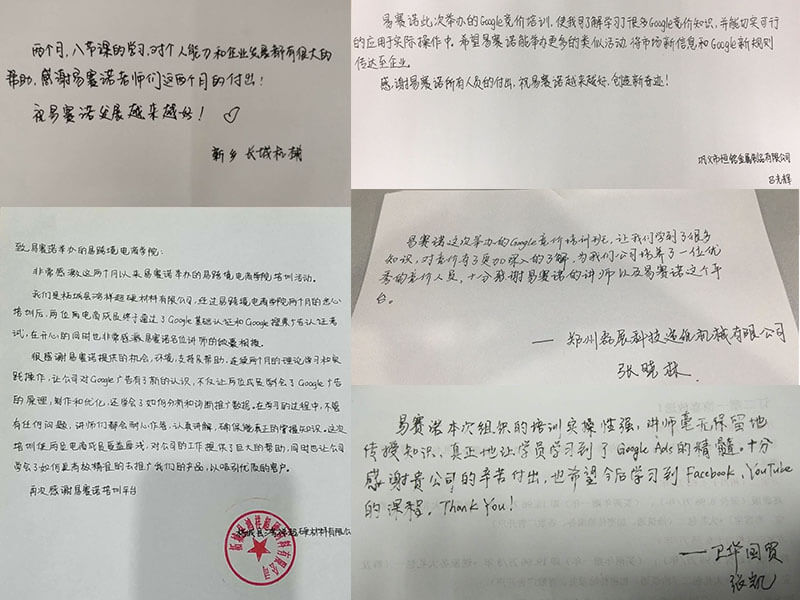 两个月，八节课的学习，对个人能力和企业发展都有很大的
帮助，感谢易赛诺老师们这两个月的付出！
祝易赛诺发展越来越好！
新乡长城机械
易赛诺此次举办的Google竞价培训，使我了解学习了很多Google竞价知识，并能切实可行
的应用于实际操作中，希望易赛诺能举办更多的类似活动，将市场新信息和Google新规则
传达至企业。
感谢易赛诺所有人员的付出，祝易赛诺越来越好，创造新奇迹！
巩义市恒铭金属制品有限公司
吕克辉
致易赛诺举办的易跨境电商学院：
非常感激这两个月以来易赛诺举办的易跨境电商学院培训活动。
我们是柘城县鸿祥超硬材料有限公司，经过易跨境电商学院两个月的悉心
培训后，两位电商成员终于通过了Google基础认证和Google搜索广告认证考
试，在开心的同时也非常感激易赛诺各位讲师的倾囊相授。
很感谢易赛诺提供的机会，环境，支持及帮助，连续两个月的理论学习和实
践操作，让公司对Google广告有了新的认识，不仅让两位成员学会了Google广告
的原理，制作和优化，还学会了如何分析和诊断推广数据。在学习的过程中，不管
有任何问题，讲师们都会耐心作答，认真讲解，确保能真正的掌握知识。这次
培训使两位电商成员受益匪浅，对公司的工作提供了巨大的帮助，同时也让公司
学会了如何更有效精准的去推广我们的产品，以吸引优质的客户。
再次感谢易赛诺培训平台
柘城县鸿祥超硬材料有限公司
易赛诺这次举办的Google竞价培训班，让我们学到了很多
知识，对竞价有了更加深入的了解，为我们公司培养了一位优
秀的竞价人员，十分感谢易赛诺的讲师以及易赛诺这个平
台。
——郑州磊展科技造纸机械有限公司
张晓
易赛诺本次组织的培训实操性强，讲师毫无保留地
传授知识、真正地让学员学习到了Google Ads的精髓。十分
感谢贵公司的辛苦付出，也希望今后学习到Facebook、YouTube
的课程。Thank You！
——卫华国贸
张凯